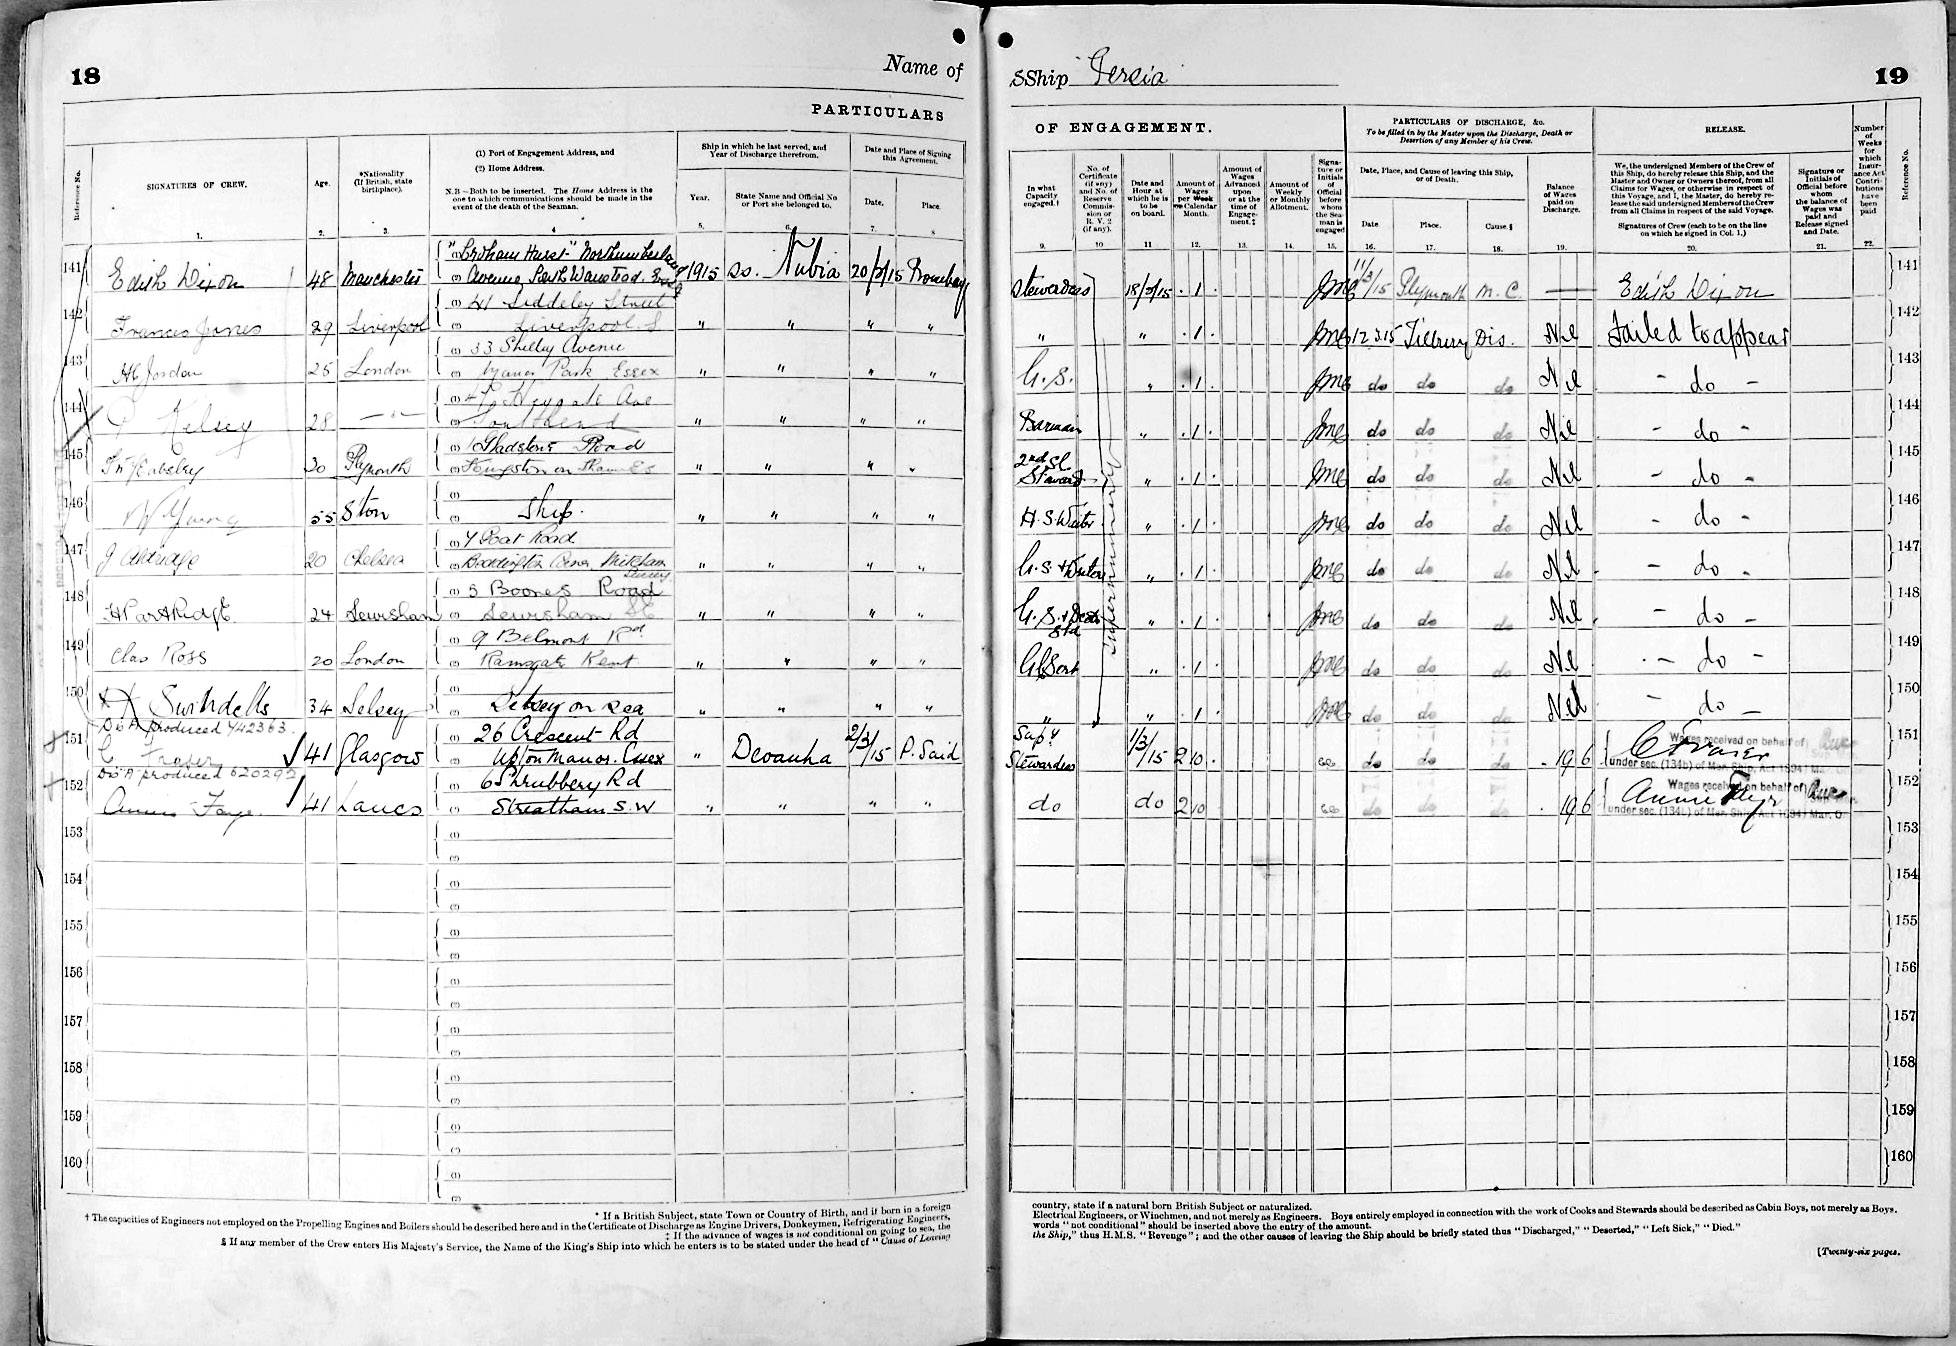 18
Name of
PARTICULARS
Reference No.
SIGNATURES OF CREW.
Age.
*Nationality
(If British, state
birthplace).
(1) Port of Engagement Address, and
(2) Home Address.
N.B—Both to be inserted. The Home Address is the
one to which communications should be made in the
event of the death of the Seaman.
Ship in which he last served, and
Year of Discharge therefrom.
Year.
State Name and Official No
or Port she belonged to.
Date and Place of Signing
this Agreement.
Date.
Place.
1. 2. 3. 4 5. 6. 7. 8
141 Edith Dixon 48 Manchester Northumberland
Avenue, Wanstead. 1915 ss. Nubia 20/2/15 Bombay
142 Frances Jones 29 Liverpool 41 Siddeley Street
Liverpool. S " " " "
143 H C Jordan 25 London 33 Shelley Avenue
Manor Park Essex " " " "
144 Kelsey 28 — " — Ave
Southend " " " "
145 30 Plymouth Gladstone Road
Kingston on Thames " " " "
146 W Young 55 Ston
Ship. " " " "
147 J Aldridge 20 Chelsea Road
Mitcham
Surrey " " " "
148 H Partridge 24 Lewisham 5 Boones Road
Lewisham SE " " " "
149 Chas Ross 20 London 9 Belmont Rd
Ramsgate Kent " " " "
150 H Swindells 34 Selsey
Selsey on Sea " " " "
Dis A produced 442363.
151 C Fraser 41 Glasgow 26 Crescent Rd
Upton Manor. Essex " Devanha 2/3/15 P. Said
Dis A produced 620292
152 Annie 41 Lancs 6 Shrubbery Rd
Streatham S.W " " " "
153
154
155
156
157
158
159
160
* If a British Subject, state Town or Country of Birth, and if born in a foreign
† The capacities of Engineers not employed on the Propelling Engines and Boilers should be described here and in the Certificate of Discharge as Engine Drivers, Donkeymen, Refrigerating Engineers,
‡ If the advance of wages is not conditional on going to sea, the
§ If any member of the Crew enters His Majesty's Service, the Name of the King's Ship into which he enters is to be stated under the head of "Cause of Leaving
SShip Persia
19
OF ENGAGEMENT.
PARTICULARS OF DISCHARGE, &c.
To be filled in by the Master upon the Discharge, Death or
Desertion of any Member of his Crew.
RELEASE.
In what
Capacity
engaged.†
No. of
Certificate
(if any)
and No. of
Reserve
Commis-
sion or
R. V. 2
(if any).
Date and
Hour at
which he is
to be
on board.
Amount of
Wages
per Week
or Calendar
Month.
Amount of
Wages
Advanced
upon
or at the
time of
Engage-
ment.‡
Amount of
Weekly
or Monthly
Allotment.
Signa-
ture or
Initials
of
Official
before
whom
the Sea-
man is
engaged
Date, Place, and Cause of leaving this Ship,
or of Death.
Date
Place.
Cause.§
Balance
of Wages
paid on
Discharge.
We, the undersigned Members of the Crew of
this Ship, do hereby release this Ship, and the
Master and Owner or Owners thereof, from all
Claims for Wages, or otherwise in respect of
this Voyage, and I, the Master, do hereby re-
lease the said undersigned Members of the Crew
from all Claims in respect of the said Voyage.
Signatures of Crew (each to be on the line
on which he signed in Col. 1.)
Signature or
Initials of
Official before
whom the
balance of
Wages was
paid and
Release signed
and Date.
Number
of
Weeks
for
which
Insur-
ance Act
Contri-
butions
have
been
paid
Reference No.
9. 10 11 12. 13. 14. 15. 16. 17. 18. 19. 20. 21. 22.
Supernumerary
Stewardess 18/2/15 . 1 . 11/3/15 Plymouth M. C. — Edith Dixon 141
" " . 1 . 12 3.15 Tilbury Dis. Nil Failed to appear 142
G. S. " . 1 . do do do Nil - do - 143
Barman " . 1 . do do do Nil - do - 144
2nd Sl
Steward " . 1 . do do do Nil - do - 145
H. S. Waiter " . 1 . do do do Nil - do - 146
G. S. + Writer " . 1 . do do do Nil - do - 147
G. S. + Deck
Std " . 1 . do do do Nil - do - 148
" . 1 . do do do Nil - do - 149
" " . 1 . do do do Nil - do - 150
Supy
Stewardess 1/3/15 2 10 . do do do . 19 6 C Fraser 151
Wages received on behalf of
under sec. (134b) of Mer. Ship. Act 1894
do do 2 10 do do do . 19 6 Annie 152
Wages received on behalf of
under sec. (134b) of Mer. Ship. Act 1894
153
154
155
156
157
158
159
160
country, state if a natural born British Subject or naturalized.
Electrical Engineers, or Winchmen, and not merely as Engineers. Boys entirely employed in connection with the work of Cooks and Stewards should be described as Cabin Boys, not merely as Boys.
words "not conditional" should be inserted above the entry of the amount.
the Ship," thus H.M.S. "Revenge"; and the other causes of leaving the Ship should be briefly stated thus "Discharged," "Deserted," "Left Sick," "Died."
[Twenty-six pages.